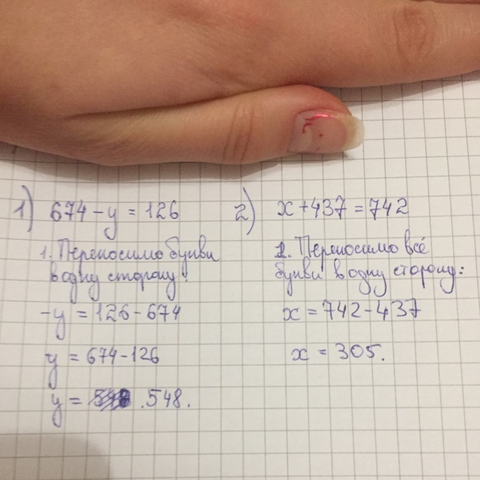 1) 674 - y = 126
1. Переносимо букви
в одну сторону:
-y = 126 - 674
y = 674 - 126
y = .548.
2) x + 437 = 742
2. Переносимо всё
букви в одну сторону:
x = 742 - 437
x = 305.